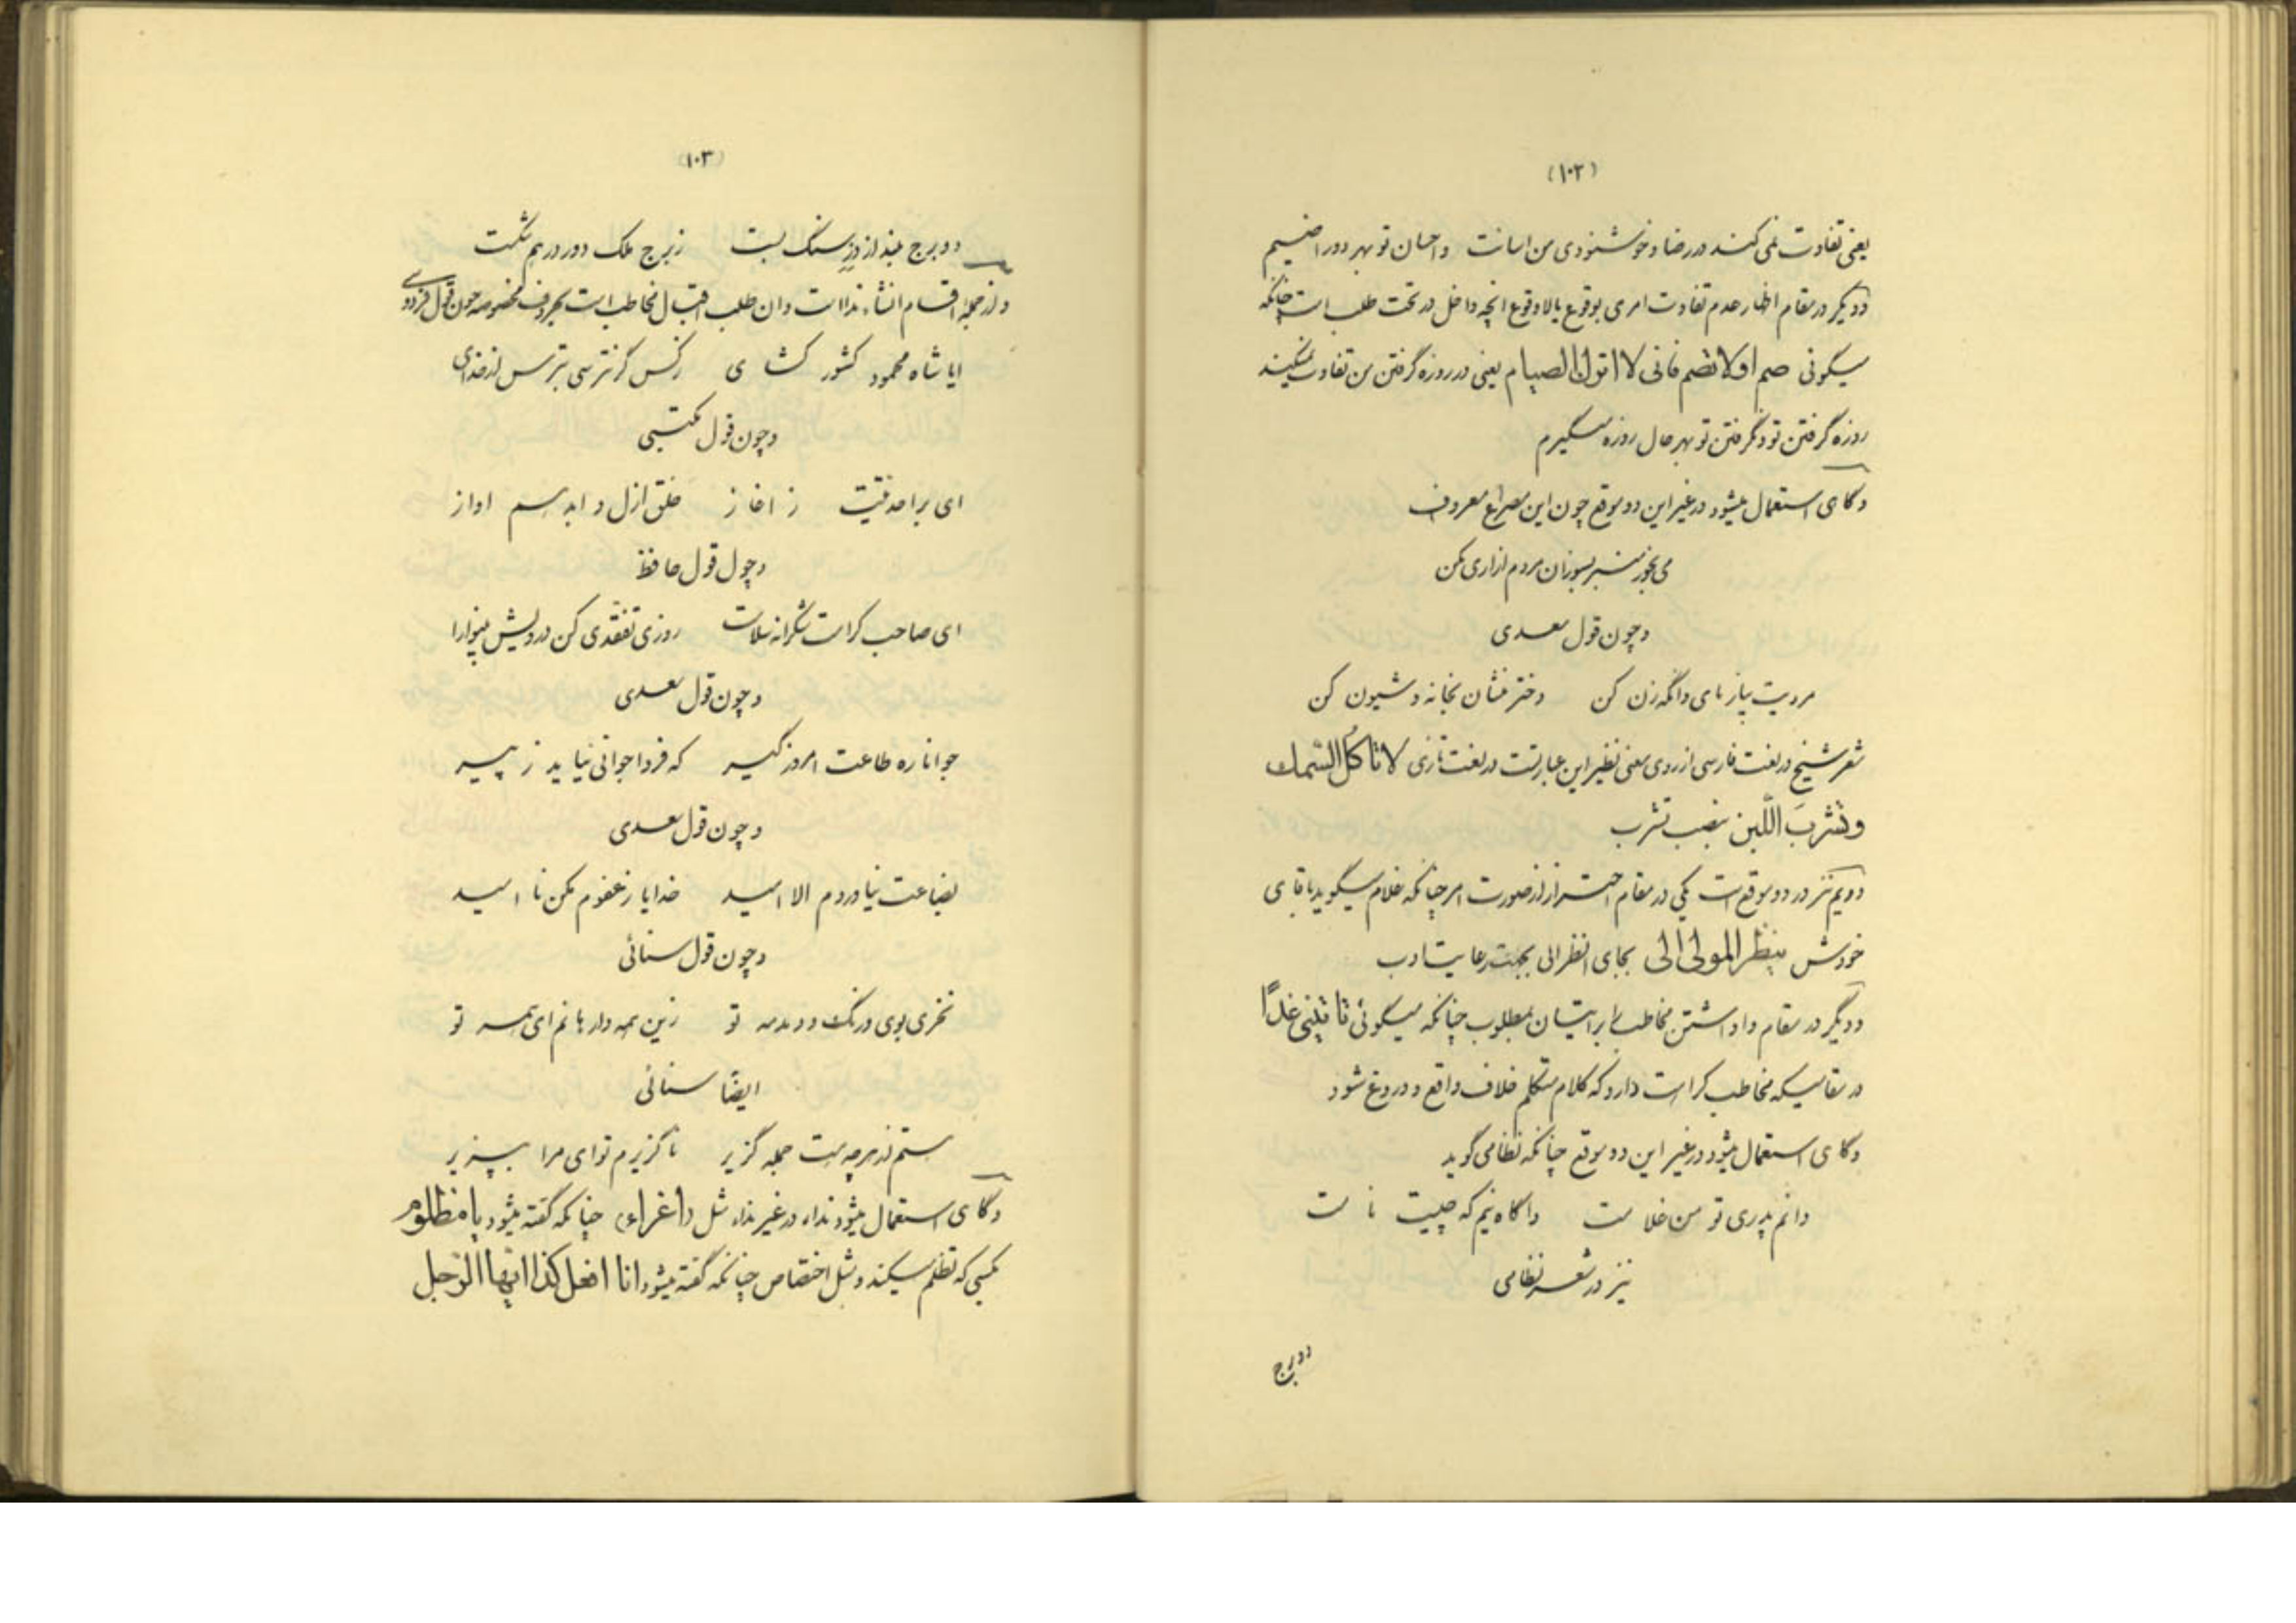 (۱۰۲)
یعنی تفاوت نمی کند در رضا و خوشنودی من اسائت و احسان تو بهر دو راضیم
و دیگر در مقام اظهار عدم تفاوت امری بوقوع یا لاوقوع انچه داخل در تحت طلب است چنانکه
میگوئی صم او لا تصم فانی لا اترك الصیام یعنی در روزه گرفتن من تفاوت نمیکند
روزه گرفتن تو و نگرفتن تو بهر حال روزه میگیرم
و گاهی استعمال میشود در غیر این دو موقع چون این مصراع معروف
می بخور منبر بسوزان مردم ازاری مکن
و چون قول سعدی
مردیت بیازمای وانگه زن کن دختر منشان بخانه و شیون کن
شعر شیخ در لغت فارسی از روی معنی نظیر این عبارتست در لغت تازی لا تاکل السّمك
و تشربَ اللّبن بنصب تشرب
دویم نیز در دو موقع است یکی در مقام احتراز از صورت امر چنانکه غلام میگوید باقای
خودش ینظر المولی الی بجای انظر الی بجهت رعایت ادب
و دیگر در مقام واداشتن مخاطب را بر اتیان بمطلوب چنانکه میگوئی تاتینی غدًا
در مقامیکه مخاطب کراهت دارد که کلام متکلم خلاف واقع و دروغ شود
و گاهی استعمال میشود در غیر این دو موقع چنانکه نظامی گوید
دانم پدری تو من غلامت واگاه نیم که چیست نامت
نیز در شعر نظامی
دو برج
(۱۰۳)
دو برج بلند از دز سنگ بست ز برج ملک دور در هم شکست
و از جمله اقسام انشاء ندا است و ان طلب اقبال مخاطب است بحروف مخصوصه چون قول فردوسی
ایا شاه محمود کشور گشای ز کس گر نترسی بترس از خدای
و چون قول مکتبی
ای بر احدیتت ز اغاز خلق ازل و ابد هم اواز
و چول قول حافظ
ای صاحب کرامت شکرانه سلامت روزی تفقّدی کن درویش بینوا را
و چون قول سعدی
جوانا ره طاعت امروز گیر که فردا جوانی نیاید ز پیر
و چون قول سعدی
بضاعت نیاوردم الا امید خدایا ز عفوم مکن نا امید
و چون قول سنائی
نخری بوی و رنگ و دمدمه تو زین همه وارهانم ای همه تو
ایضًا سنائی
ستم از هر چه هست جمله گزیر ناگزیرم توای مرا بپذیر
و گاهی استعمال میشود نداء در غیر نداء مثل (اغراء) چنانکه گفته میشود یا مظلوم
بکسی که تظلم میکند و مثل اختصاص چنانکه گفته میشود انا افعل کذا ایها الرّجل